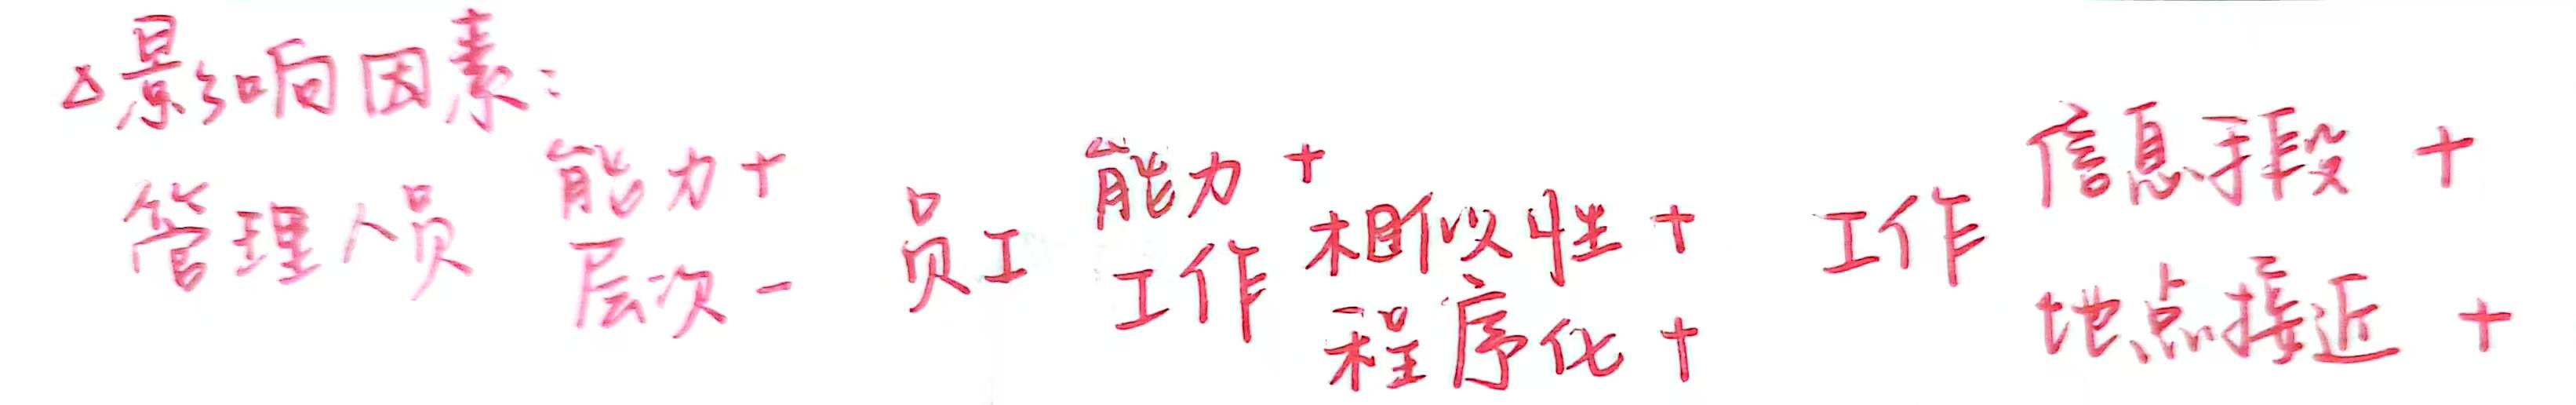 △影响因素:
管理人员 能力+
层次-
员工 能力+
工作 相似性+
程序化+
工作 信息手段+
地点接近+